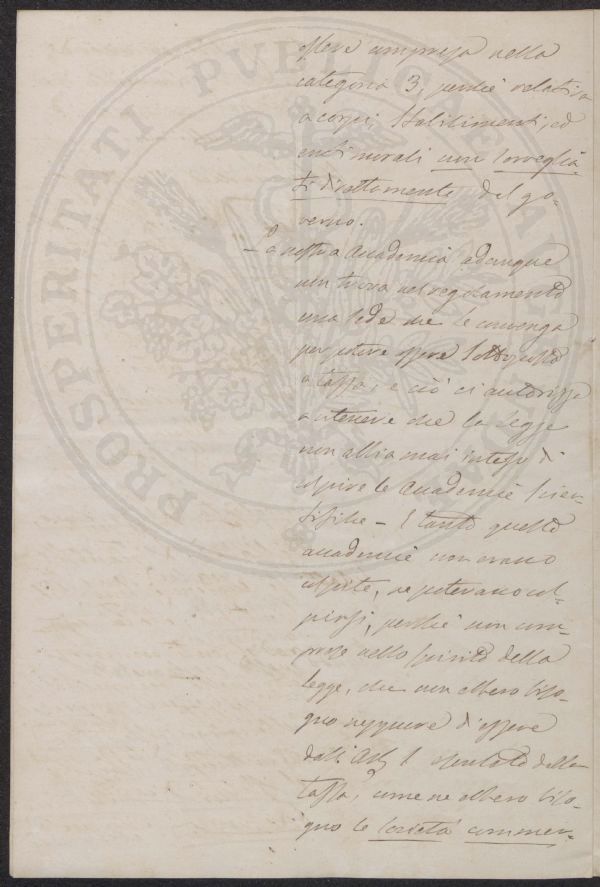 essere compresa nella
categoria 3, perchè relativa
a corpi, stabilimenti, ed
enti morali non sorveglia-
ti direttamente dal go-
verno.
La nostra Accademia adunque
non trova nel regolamento
una sede che le convenga
per potere essere sottoposta
a tassa, e ciò ci autorizza
a ritenere che la legge
non abbia mai inteso di
colpire le Accademie scien-
tifiche – E tanto queste
accademie non erano
colpite, ne potevano col-
pirsi, perchè non com-
prese nello spirito della
legge, che non ebbero biso-
gno neppure d'essere
dall' Art 1 esentate della
tassa, come ne ebbero biso-
gno le società commer-
PROSPERITATI PUBLICAE AU